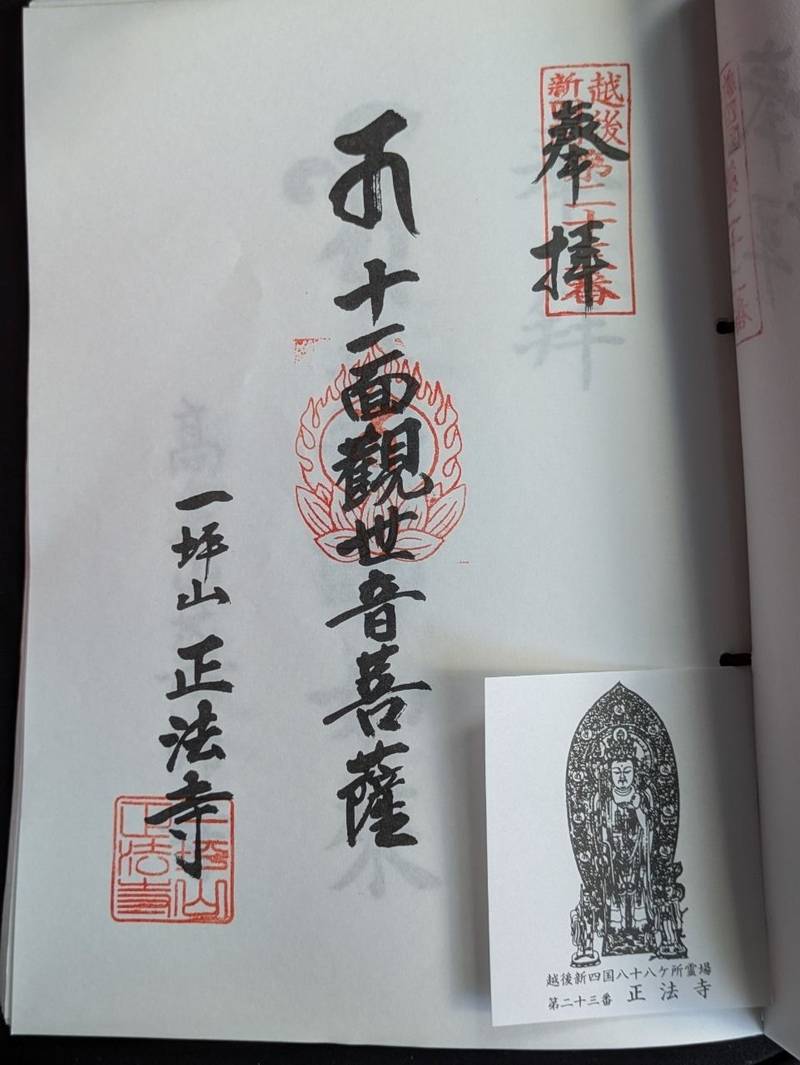 奉拝
越後
新四国
第二十三番
十一面観世音菩薩
一坪山 正法寺
一坪山
正法寺
越後新四国八十八ケ所霊場
第二十三番 正法寺